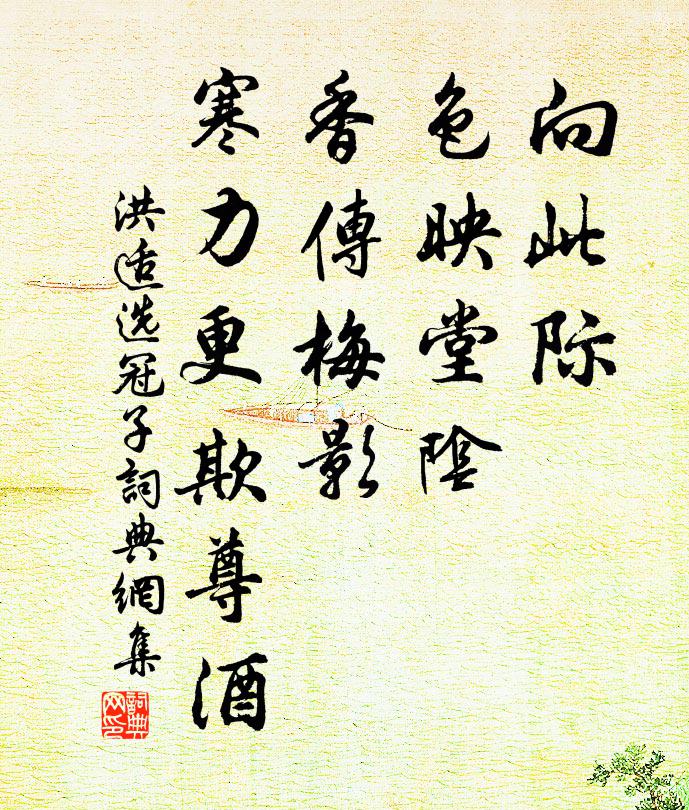 向此际
色映堂陰
香傳梅影
寒力更欺尊酒
洪适选冠子詞典網集
詞典网印